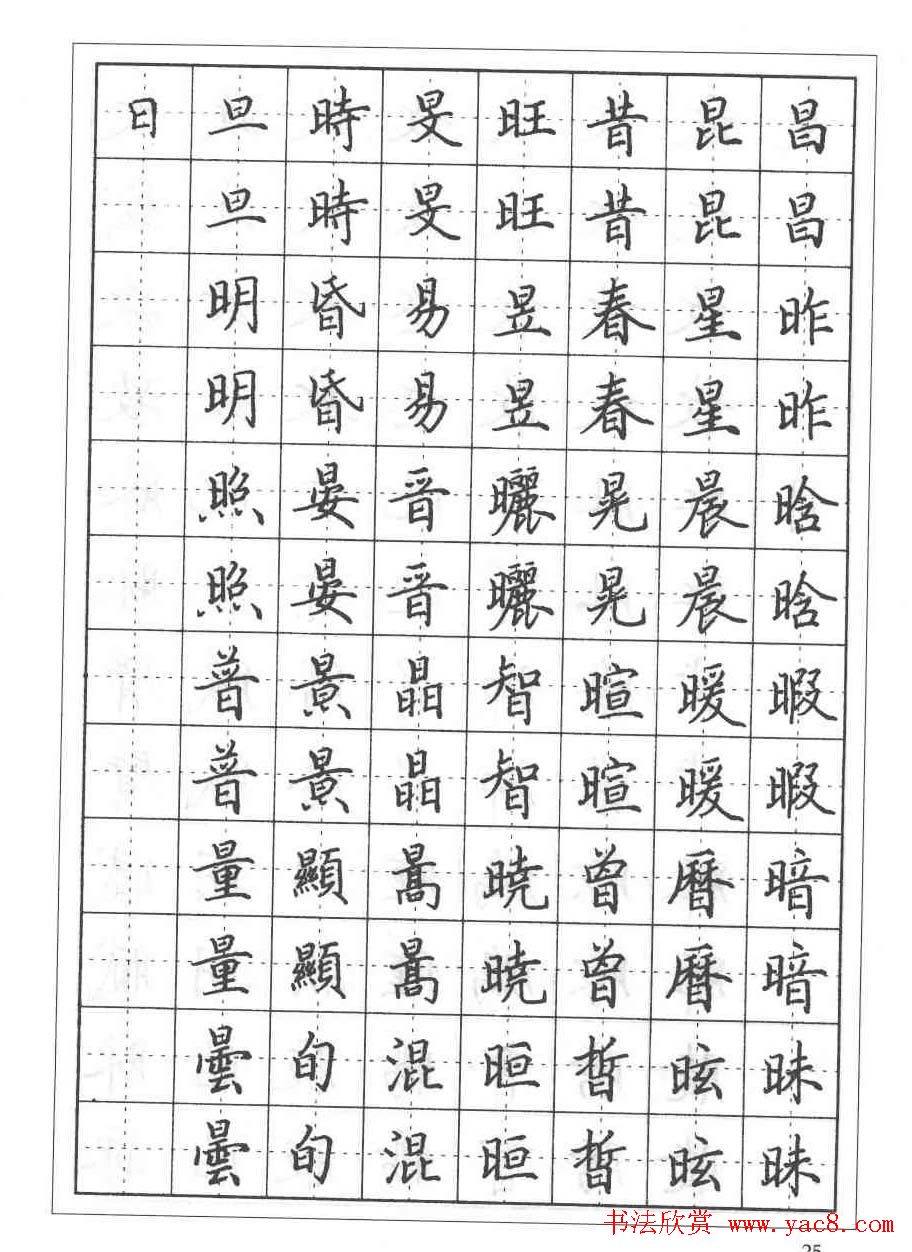 日 旦 時 旻 旺 昔 昆 昌
旦 時 旻 旺 昔 昆 昌
明 昏 易 昱 春 星 昨
明 昏 易 昱 春 星 昨
照 晏 晋 曬 晃 晨 晗
照 晏 晋 曬 晃 晨 晗
普 景 晶 智 暄 暖 暇
普 景 晶 智 暄 暖 暇
量 顯 暠 曉 曾 曆 暗
量 顯 暠 曉 曾 曆 暗
曇 旬 混 晅 晳 昡 昧
曇 旬 混 晅 晳 昡 昧
书法欣赏 www.yac8.com
25